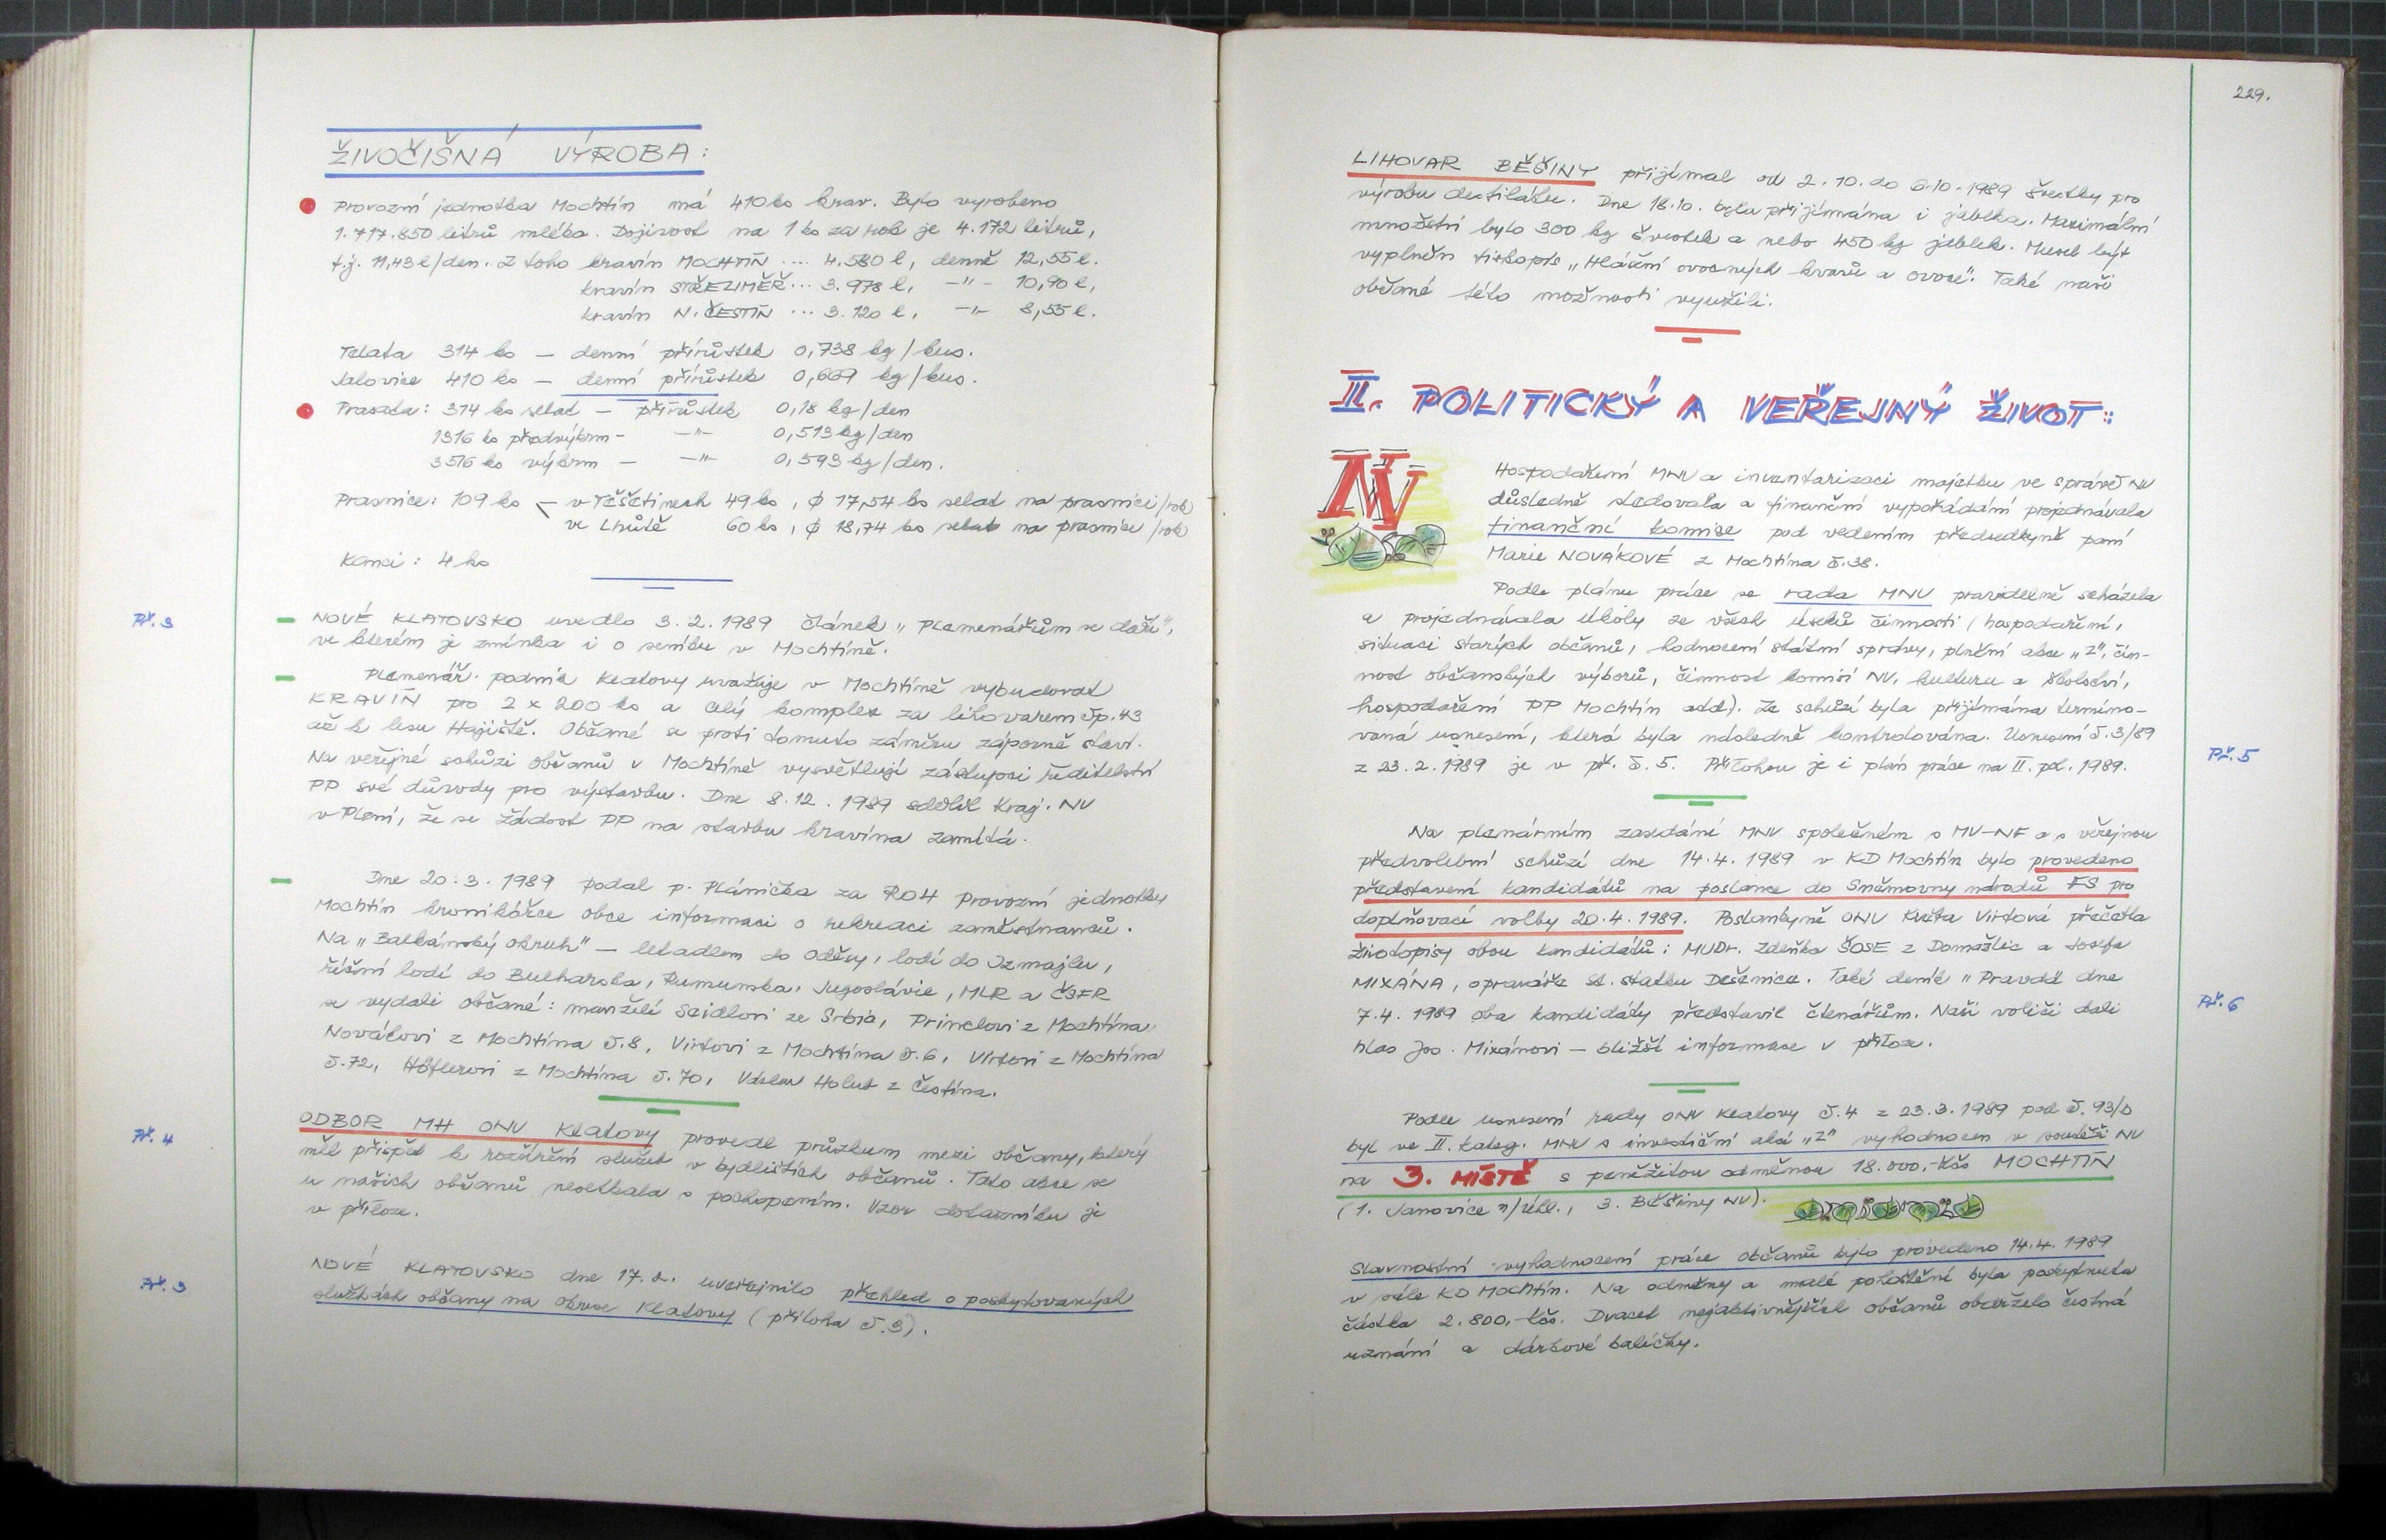 ŽIVOČIŠNÁ VÝROBA:
Provozní jednotka Mochtín má 410 ks krav. Bylo vyrobeno
1.717.850 litrů mléka. Dojivost na 1 ks za rok je 4.172 litrů,
t.j. 11,43 l/den. Z toho kravín MOCHTÍN .... 4.580 l, denně 12,55 l.
kravín STŘEZIMĚŘ ... 3.978 l, -"- 10,90 l,
kravín N. ČESTÍN ... 3.120 l, -"- 8,55 l.
Telata 314 ks — denní přírůstek 0,738 kg/kus.
Jalovice 410 ks — denní přírůstek 0,669 kg/kus.
Prasata: 314 ks selat — přírůstek 0,18 kg/den
1316 ks předvýkrm - -"- 0,513 kg/den
3516 ks výkrm — -"- 0,593 kg/den.
Prasnice: 109 ks - v Těšetinech 49 ks, ϕ 17,54 ks selat na prasnici/rok
ve Lhůtě 60 ks, ϕ 18,74 ks selat na prasnice/rok
Kanci: 4 ks
Př. 3
NOVÉ KLATOVSKO uvedlo 3.2.1989 článek "Plemenářům se daří",
ve kterém je zmínka i o seníku v Mochtíně.
Plemenář. podnik Klatovy uvažuje v Mochtíně vybudovat
KRAVÍN pro 2 x 200 ks a celý komplex za lihovarem čp. 43
až k lesu Hájiště. Občané se proti tomuto záměru záporně staví.
Na veřejné schůzi občanů v Mochtíně vysvětlují zástupci ředitelství
PP své důvody pro výstavbu. Dne 8.12.1989 sdělil Kraj. NV
v Plzni, že se žádost PP na stavbu kravína zamítá.
Dne 20.3.1989 podal p. Plánička za ROH Provozní jednotky
Mochtín kronikářce obce informaci o rekreaci zaměstnanců.
Na "Balkánský okruh" — letadlem do Oděsy, lodí do Izmajlu,
říční lodí do Bulharska, Rumunska, Jugoslávie, MLR a ČSFR
se vydali občané: manželé Seidlovi ze Srbic, Princlovi z Mochtína,
Novákovi z Mochtína č.8, Virtovi z Mochtína č.6, Virtovi z Mochtína
č.72, Höflerovi z Mochtína č.70, Václav Holub z Čestína.
Př. 4
ODBOR MH ONV Klatovy provedl průzkum mezi občany, který
měl přispět k rozšíření služeb v bydlištích občanů. Tato akce se
u našich občanů nesetkala s pochopením. Vzor dotazníku je
v příloze.
Př. 3
NOVÉ KLATOVSKO dne 17.2. uveřejnilo přehled o poskytovaných
službách občany na okrese Klatovy (příloha č.3).
229.
LIHOVAR BĚŠINY přijímal od 2.10. do 6.10.1989 švestky pro
výrobu destilátu. Dne 18.10. byla přijímána i jablka. Maximální
množství bylo 300 kg švestek a nebo 450 kg jablek. Musel být
vyplněn tiskopis "Hlášení ovocných kvasů a ovoce". Také naši
občané této možnosti využili.
II. POLITICKÝ A VEŘEJNÝ ŽIVOT:
NV
Hospodaření MNV a inventarizaci majetku ve správě NV
důsledně sledovala a finanční vypořádání projednávala
finanční komise pod vedením předsedkyně paní
Marie NOVÁKOVÉ z Mochtína č.38.
Podle plánu práce se rada MNV pravidelně scházela
a projednávala úkoly ze všech úseků činnosti (hospodaření,
situaci starých občanů, hodnocení státní správy, plnění akce "Z", čin-
nost občanských výborů, činnost komisí NV, kulturu a školství,
hospodaření PP Mochtín atd). Ze schůzí byla přijímána termíno-
vaná usnesení, která byla následně kontrolována. Usnesení č.3/89
z 23.2.1989 je v př. č. 5. Přílohou je i plán práce na II. pol. 1989.
Př. 5
Na plenárním zasedání MNV společném s MV-NF a s veřejnou
předvolební schůzí dne 14.4.1989 v KD Mochtín bylo provedeno
představení kandidátů na poslance do Sněmovny národů FS pro
doplňovací volby 20.4.1989. Poslankyně ONV Květa Virtová přečetla
životopisy obou kandidátů: MUDr. Zdeňka ŠOSE z Domažlic a Josefa
MIXÁNA, opraváře St. statku Dešenice. Také deník "Pravda" dne
7.4. 1989 oba kandidáty představil čtenářům. Naši voliči dali
hlas Jos. Mixánovi — bližší informace v příloze.
Př. 6
Podle usnesení rady ONV Klatovy č.4 z 23.3.1989 pod č. 93/b
byl ve II. kateg. MNV s investiční akcí "Z" vyhodnocen v soutěži NV
na 3. MÍSTĚ s peněžitou odměnou 18.000,-Kčs MOCHTÍN
(1. Janovice n/Úhl., 3. Běšiny NV).
Slavnostní vyhodnocení práce občanů bylo provedeno 14.4.1989
v sále KD Mochtín. Na odměny a malé pohoštění byla poskytnuta
částka 2.800,-Kčs. Dvacet nejaktivnějších občanů obdrželo čestná
uznání a dárkové balíčky.